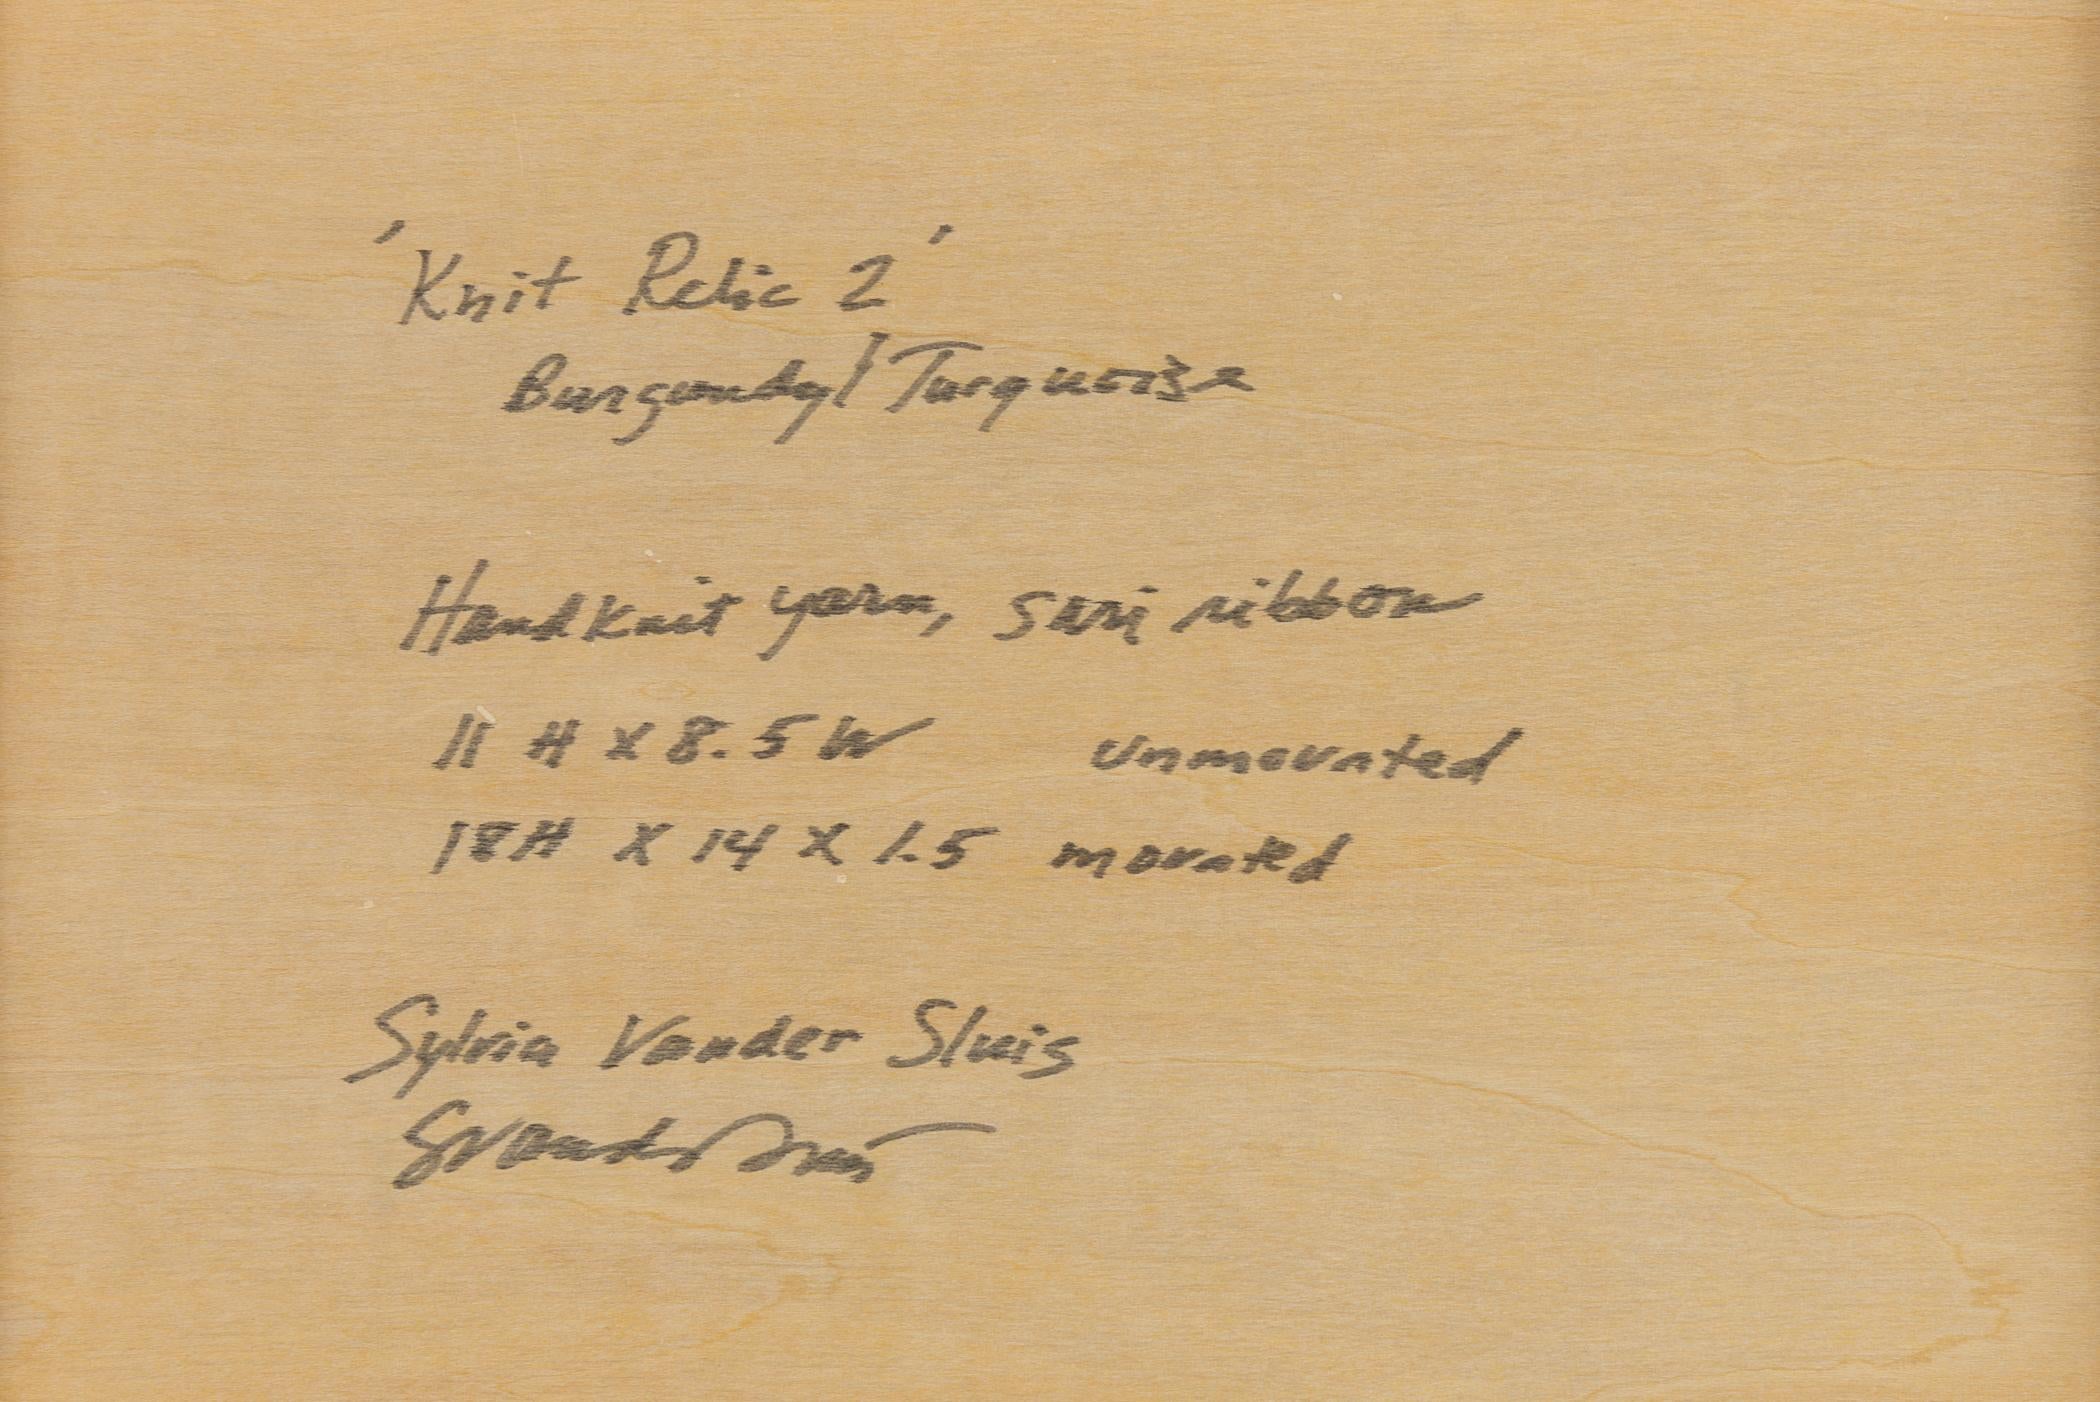 'Knit Relic 2'
Burgundy/Turquoise
Handknit yarn, sari ribbon
11 H x 8.5 W unmounted
18H x 14 x 1.5 mounted
Sylvia Vander Sluis